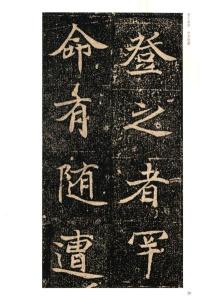 登之者罕
命有随遭